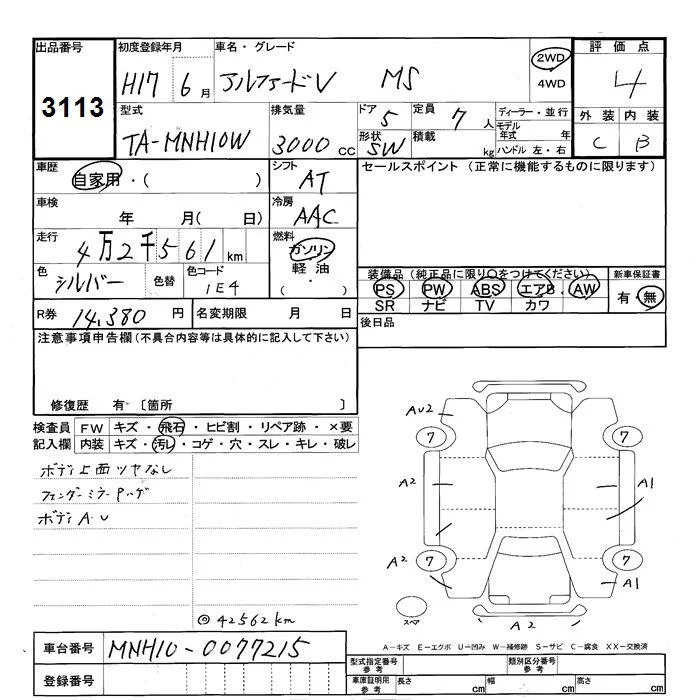 出品番号
3113
初度登録年月
H17 6月
車名・グレード
アルファードV MS
2WD
4WD
評価点
4
外装 内装
C B
型式
TA-MNH10W
排気量
3000 CC
ドア 5
形状 SW
定員 7人
積載 kg
ディーラー・並行
モデル年式 年
ハンドル 左・右
車歴
自家用・( )
シフト
AT
セールスポイント (正常に機能するものに限ります)
車検
年 月( 日)
冷房
AAC
走行
4万2千561km
燃料
ガソリン
軽油
( ・ )
色
シルバー
色替
色コード
1E4
装備品(純正品に限り○をつけてください)
PS PW ABS エアB. AW
SR ナビ TV カワ
新車保証書
有・無
R券 14,380 円
名変期限 月 日
後日品
注意事項申告欄(不具合内容等は具体的に記入して下さい)
修復歴 有 〔箇所 〕
検査員記入欄
FW キズ・飛石・ヒビ割・リペア跡・×要
内装 キズ・汚レ・コゲ・穴・スレ・キレ・破レ
ボディ上面ツヤなし
フェンダーミラーPハゲ
ボディA.U
◎42562km
AU2
7 7
A2 A1
A2 7 7 A1
スペア
A2
A―キズ E―エクボ U―凹み W―補修跡 S―サビ C―腐食 XX―交換済
車台番号 MNH10-0077215
登録番号
型式指定番号 参考
類別区分番号 参考
車庫証明用 参考
長さ cm 幅 cm 高さ cm